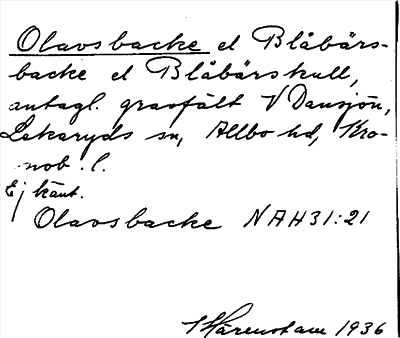 Olavsbacke el Blåbärs-
backe el Blåbärskull,
antagl. gravfält V Dansjön,
Lekaryds sn, Allbo hd, Kro-
nob. l.
Ej känt.
Olavsbacke NAH31:21
Hårenstam 1936